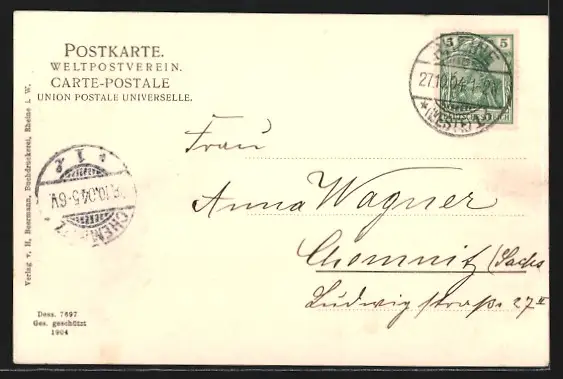 POSTKARTE.
WELTPOSTVEREIN.
CARTE-POSTALE
UNION POSTALE UNIVERSELLE.
5 5
RHEINE
27.10.04
*(WESTF.)
Frau
Anna Wagner
Chemnitz (Sachs
Ludwigstraße 27 II
CHEMNITZ
.10.04.5-6V.
* 1
Verlag v. H. Beermann, Buchdruckerei, Rheine i. W.
Dess. 7697
Ges. geschützt
1904